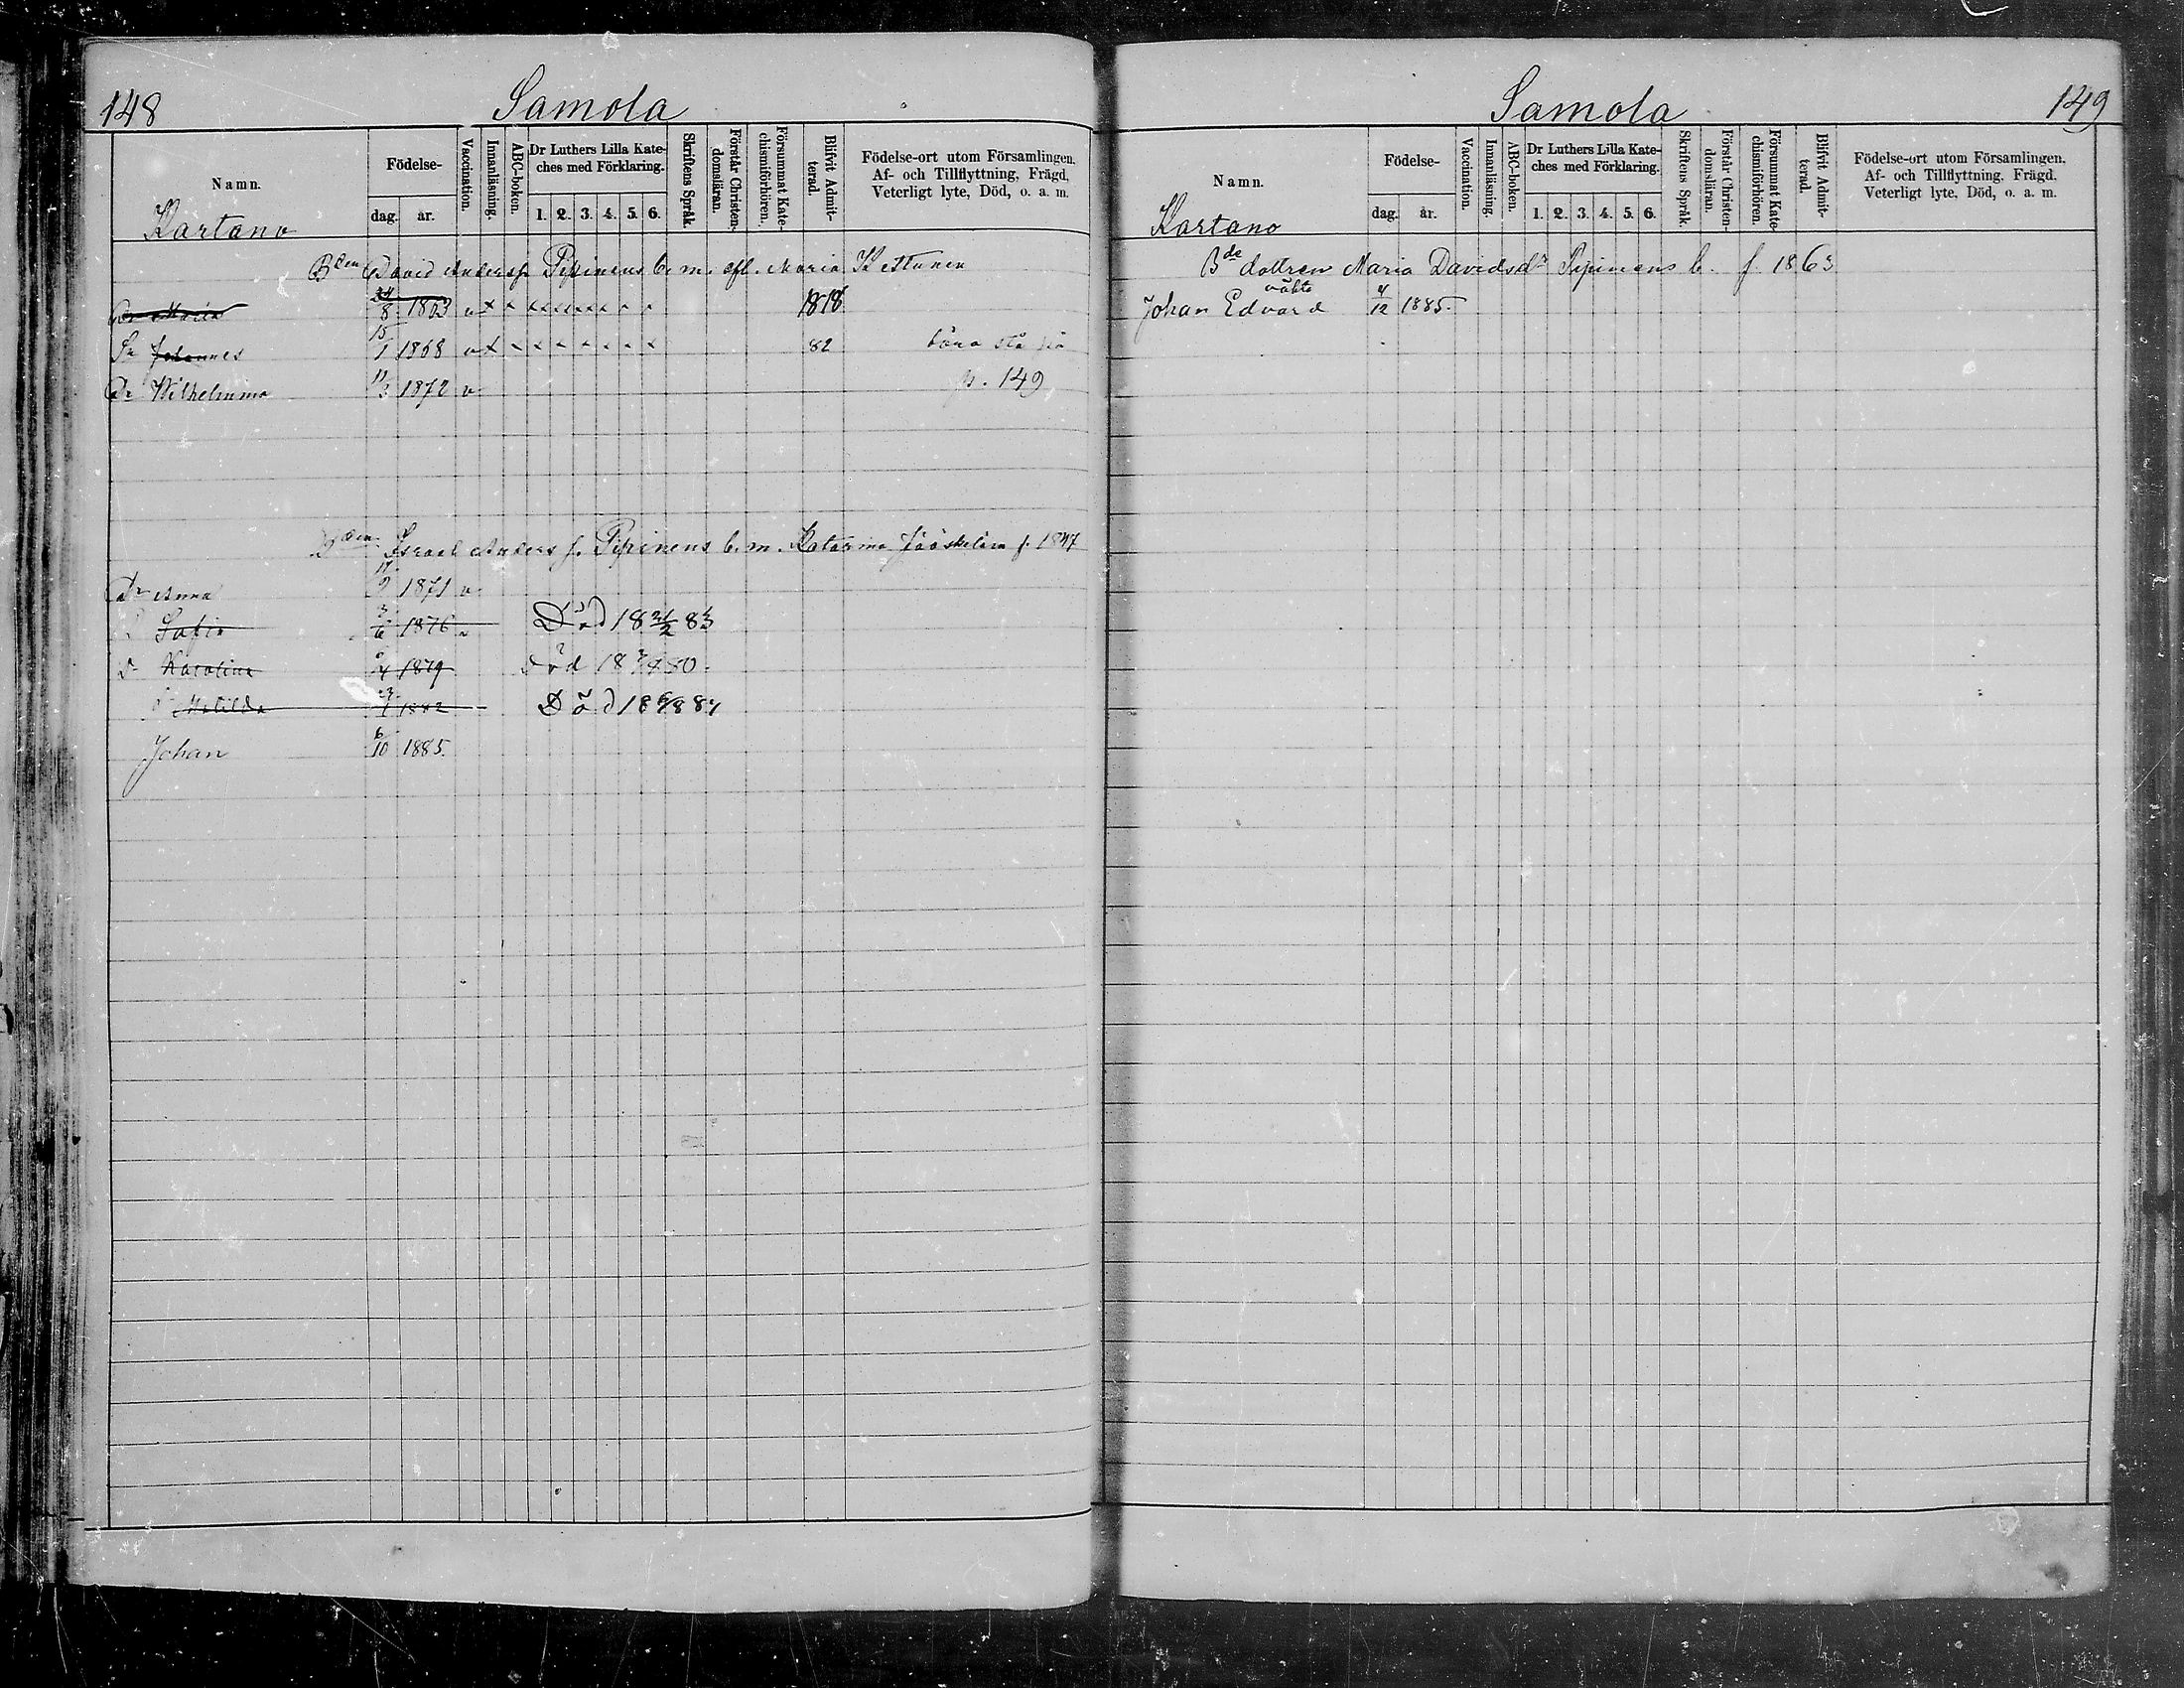 148
Samola
Namn.
Födelse-
dag.
år.
Vaccination.
Innanläsning.
ABC-boken.
Dr Luthers Lilla Kate-
ches med Förklaring.
1. 2. 3. 4. 5. 6.
Skriftens Språk.
Förstår Christen-
domsläran.
Försummat Kate-
chismiförhören.
Blifvit Admit-
terad.
Födelse-ort utom Församlingen.
Af- och Tillflyttning, Frägd,
Veterligt lyte, Död, o. a. m.
Kartano
Bden David Anderss. Pipinens b. m. afl. Maria Kettunen
Dr Maria 24/8 1863 v x x x x x x x x 1818
Sn Johannes 15/1 1868 v x x x x x x x x 82 stå på
Dr Wilhelmina 11/3 1872 v. p. 149
Bden Israel Anders s. Pipinens b. m. Katarina Jääskeläin f. 1847
Dr Anna 17/9 1871 v.
Sofia 3/6 1876 Död 18 21/2 83
Karolina 1879 Död 80.
Matilda 23/1 1882 Död 18
Johan 6/10 1885.
Samola
149
Namn.
Födelse-
dag.
år.
Vaccination.
Innanläsning.
ABC-boken.
Dr Luthers Lilla Kate-
ches med Förklaring.
1. 2. 3. 4. 5. 6.
Skriftens Språk.
Förstår Christen-
domsläran.
Försummat Kate-
chismiförhören.
Blifvit Admit-
terad.
Födelse-ort utom Församlingen.
Af- och Tillflyttning, Frägd,
Veterligt lyte, Död, o. a. m.
Kartano
Bde dottren Maria Davidsdr Pipinens b. f. 1863
oäkta
Johan Edvard 4/12 1885.